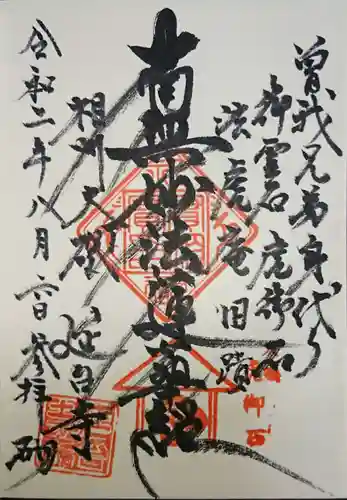 曽我兄弟身代り
御霊石 虎御石
法虎庵旧蹟
南無妙法蓮華経
相州大磯
延台寺
令和二年八月六日参拝